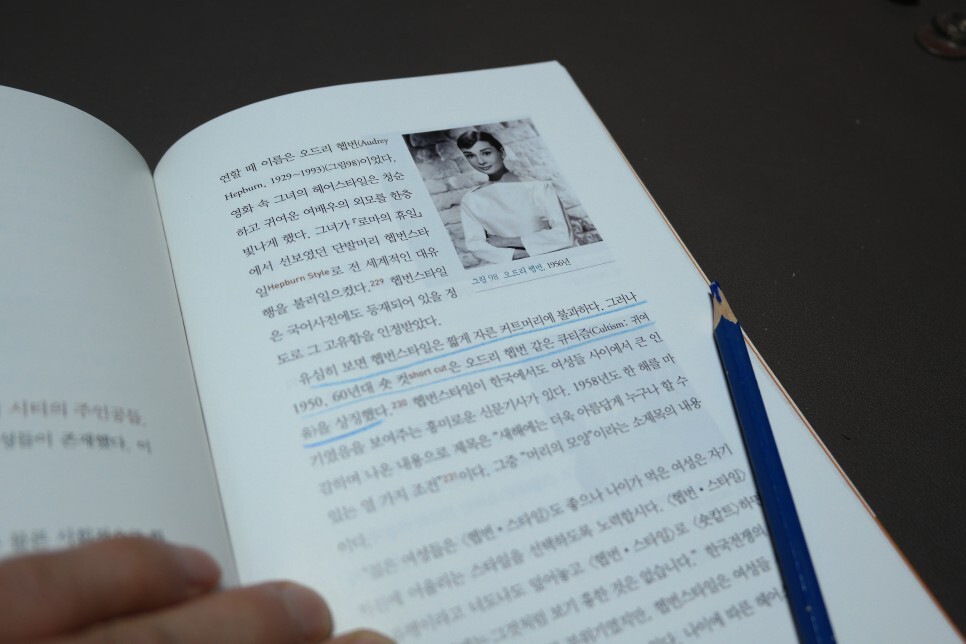 시티의 주인공들,
성들이 존재했다. 이
연할 때 이름은 오드리 헵번(Audrey
Hepburn, 1929~1993)(그림98)이었다.
영화 속 그녀의 헤어스타일은 청순
하고 귀여운 여배우의 외모를 한층
빛나게 했다. 그녀가 『로마의 휴일』
에서 선보였던 단발머리 헵번스타
일Hepburn Style로 전 세계적인 대유
행을 불러일으켰다.229 헵번스타일
은 국어사전에도 등재되어 있을 정
도로 그 고유함을 인정받았다.
그림 98 오드리 헵번, 1956년
유심히 보면 헵번스타일은 짧게 자른 커트머리에 불과하다. 그러나
1950, 60년대 숏 컷short cut은 오드리 헵번 같은 큐티즘(Cultism: 귀여
움)을 상징했다.230 헵번스타일이 한국에서도 여성들 사이에서 큰 인
기였음을 보여주는 흥미로운 신문기사가 있다. 1958년도 한 해를 마
감하며 나온 내용으로 제목은 "새해에는 더욱 아름답게 누구나 할 수
있는 열 가지 조건"231이다. 그중 "머리의 모양"이라는 소제목의 내용
이다.
"젊은 여성들은 〈헵번·스타일〉도 좋으나 나이가 먹은 여성은 자기
어울리는 스타일을 선택하도록 노력합시다. 〈헵번·스타일〉
이라고 너도나도 덮어놓고 〈헵번·스타일〉로 〈숏캍트〉하면
그것처럼 보기 흉한 것은 없습니다." 한국전쟁의
분위기였지만, 헵번스타일은 여성들
나이에 따른 헤어